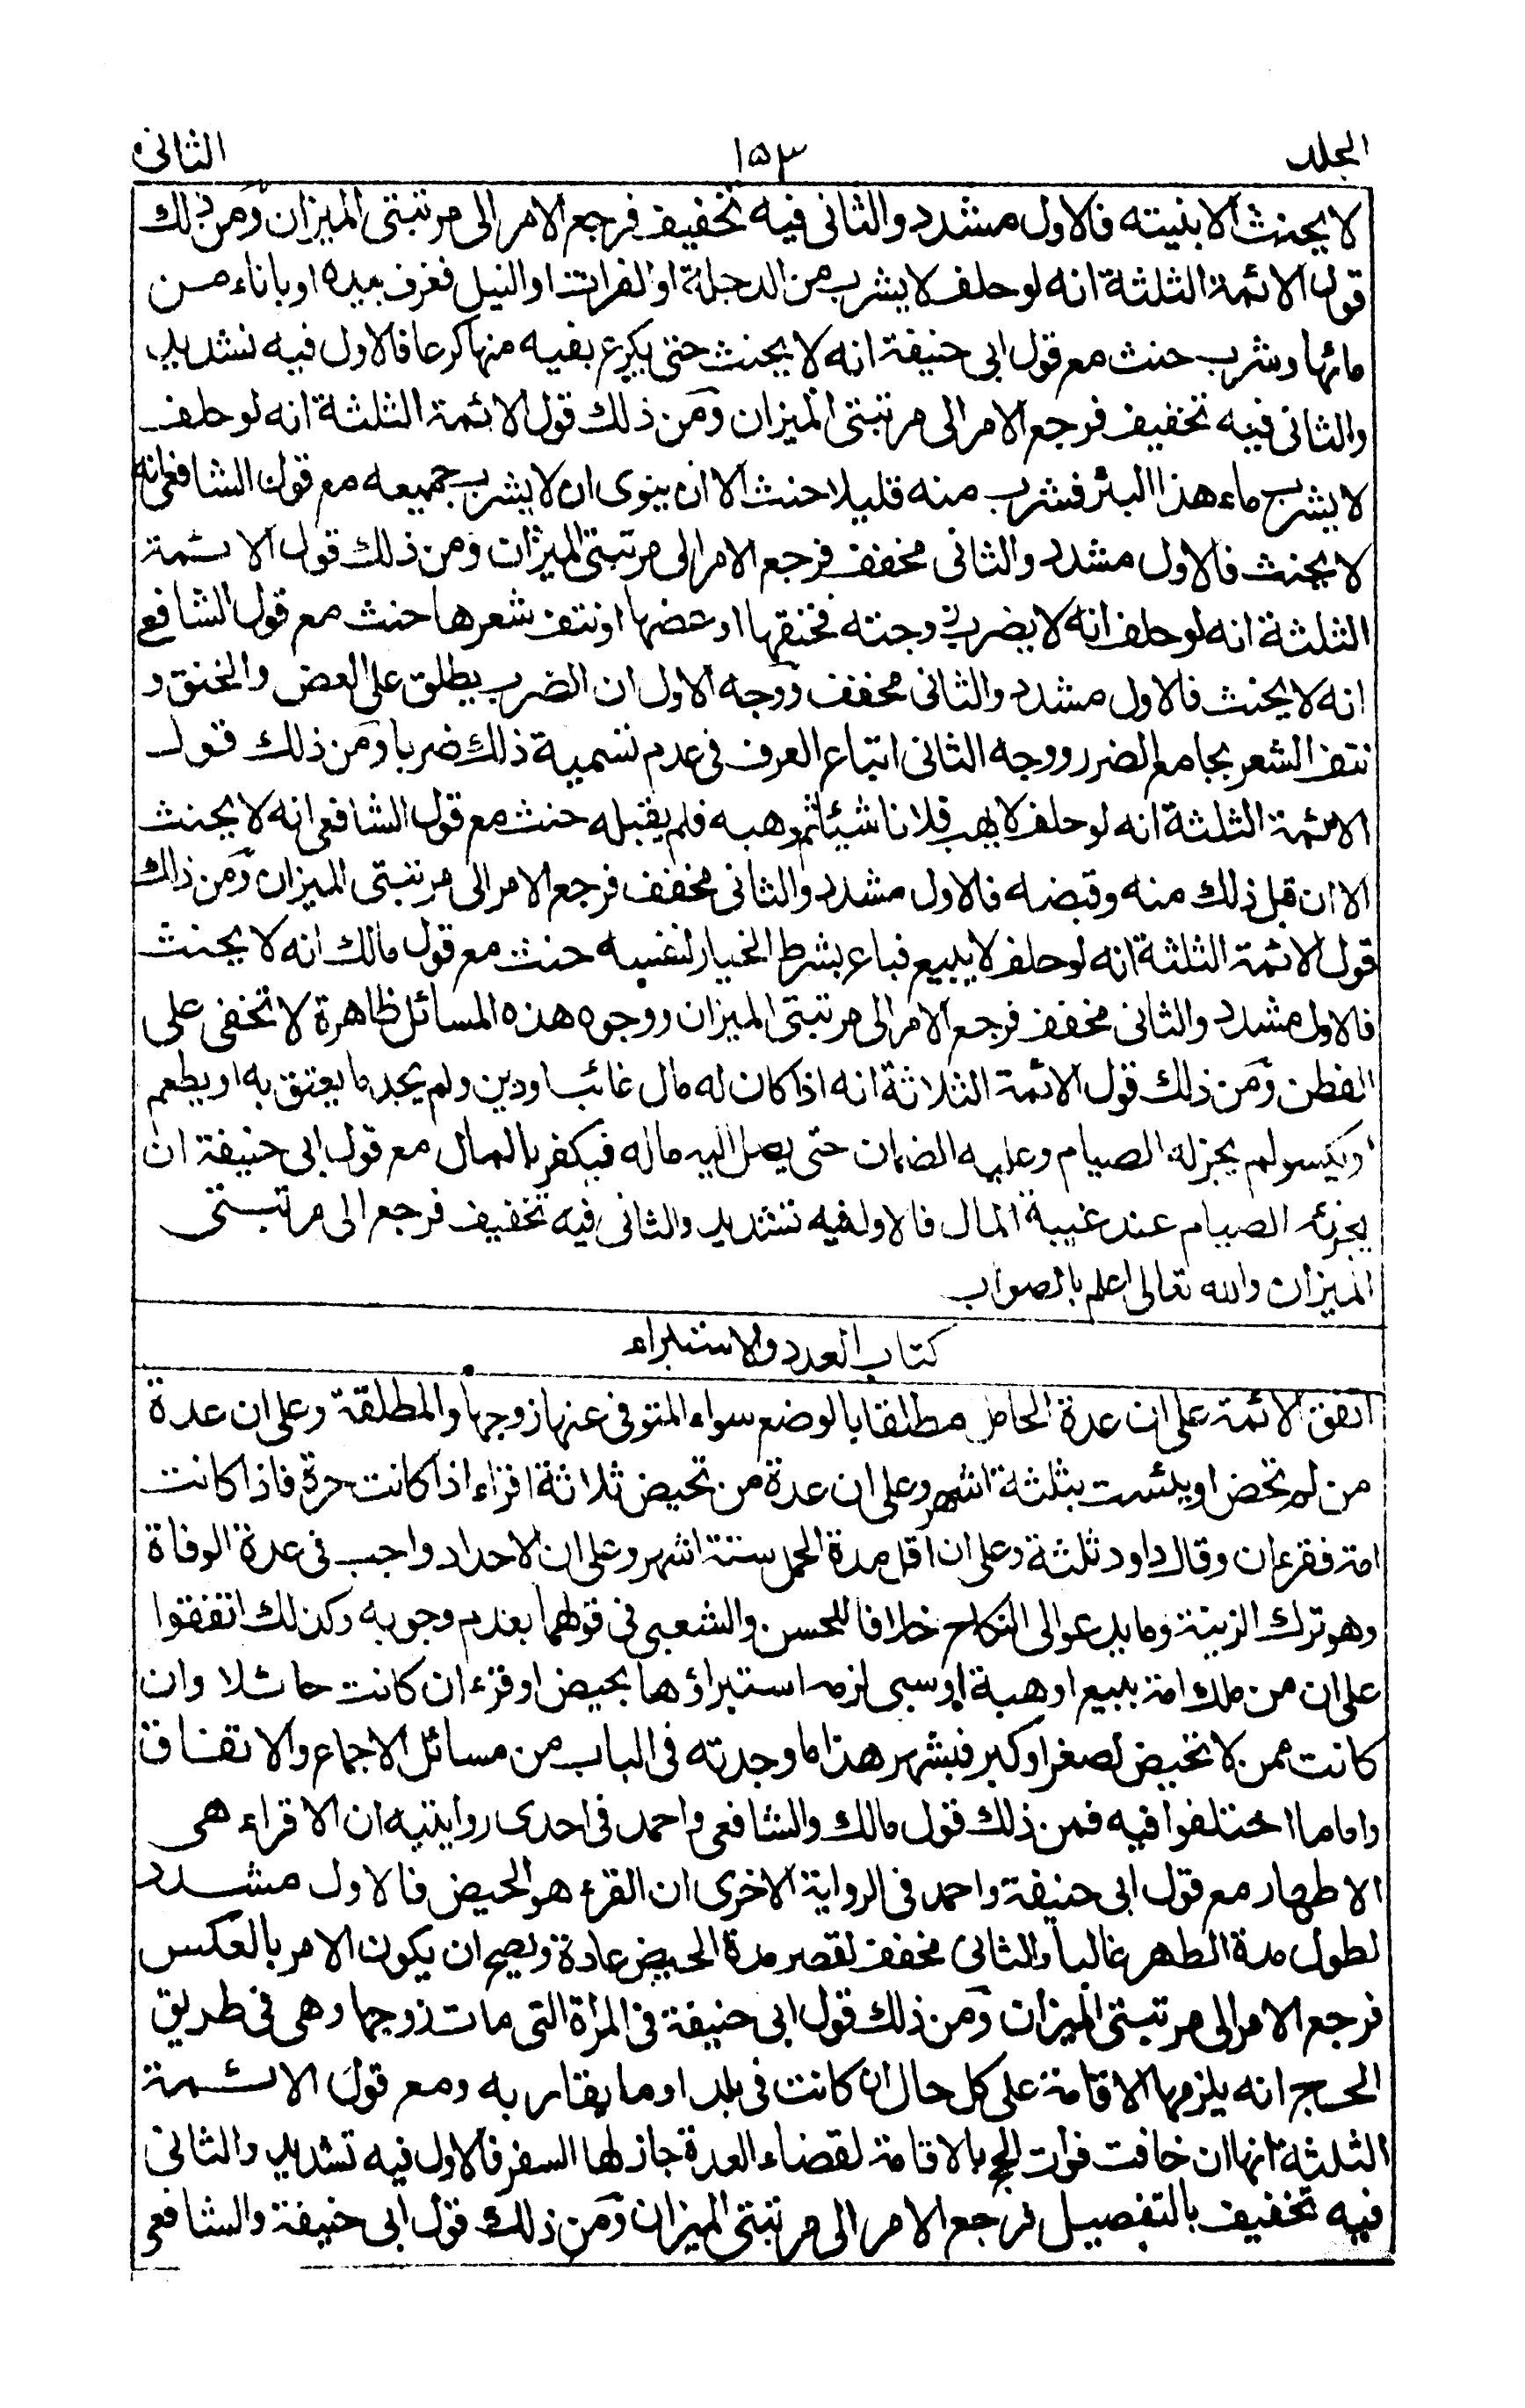 المجلد ١٥٣ الثانى
لا يحنث الا بنيته فالاول مشدد والثانى فيه تخفيف فرجع الامر الى مرتبتى الميزان ومن ذلك
قول الائمة الثلثة انه لو حلف لا يشرب من الدجلة او الفرات او النيل فغرف بيده او باناء من
مائها وشرب حنث مع قول ابى حنيفة انه لا يحنث حتى يكرع بفيه منها كرعا فالاول فيه تشديد
والثانى فيه تخفيف فرجع الامر الى مرتبتى الميزان ومن ذلك قول الائمة الثلثة انه لو حلف
لا يشرب ماء هذا البئر فشرب منه قليلا حنث الا ان ينوى ان لا يشرب جميعه مع قول الشافعى انه
لا يحنث فالاول مشدد والثانى مخفف فرجع الامر الى مرتبتى الميزان ومن ذلك قول الائمة
الثلثة انه لو حلف انه لا يضرب زوجته فخنقها او عضها او نتف شعرها حنث مع قول الشافعى
انه لا يحنث فالاول مشدد والثانى مخفف ووجه الاول ان الضرب يطلق على العض والخنق و
نتف الشعر بجامع الضرر ووجه الثانى اتباع العرف فى عدم تسمية ذلك ضربا ومن ذلك قول
الائمة الثلثة انه لو حلف لا يهب فلانا شيئا ثم وهبه فلم يقبله حنث مع قول الشافعى انه لا يحنث
الا ان قبل ذلك منه وقبضه فالاول مشدد والثانى مخفف فرجع الامر الى مرتبتى الميزان ومن ذالك
قول الائمة الثلثة انه لو حلف لا يبيع فباع بشرط الخيار لنفسه حنث مع قول مالك انه لا يحنث
فالاول مشدد والثانى مخفف فرجع الامر الى مرتبتى الميزان ووجوه هذه المسائل ظاهرة لا تخفى على
الفطن ومن ذلك قول الائمة الثلاثة انه اذا كان له مال غائب او دين ولم يجد ما يعتق به او يطعم
او يكسو لم يجز له الصيام وعليه الضمان حتى يصل اليه ماله فيكفر بالمال مع قول ابى حنيفة ان
يجزئه الصيام عند غيبة المال فالاول فيه تشديد والثانى فيه تخفيف فرجع الى مرتبتى
الميزان والله تعالى اعلم بالصواب
كتاب العدد والاستبراء
اتفق الائمة على ان عدة الحامل مطلقا بالوضع سواء المتوفى عنها زوجها والمطلقة وعلى ان عدة
من لم تحض او يئست بثلثة اشهر وعلى ان عدة من تحيض ثلاثة اقراء اذا كانت حرة فاذا كانت
امة فقرءان وقال داود ثلثة وعلى ان اقل مدة الحمل ستة اشهر وعلى ان الاحداد واجب فى عدة الوفاة
وهو ترك الزينة وما يدعو الى النكاح خلافا للحسن والشعبى فى قولهما بعدم وجوبه وكذلك اتفقوا
على ان من ملك امة ببيع او هبة او سبى لزمه استبراؤها بحيض او قرء ان كانت حائلا وان
كانت ممن لا تحيض لصغر او كبر فبشهر هذا ما وجدته فى الباب من مسائل الاجماع والاتفاق
واما ما اختلفوا فيه فمن ذلك قول مالك والشافعى واحمد فى احدى روايتيه ان الاقراء هى
الاطهار مع قول ابى حنيفة واحمد فى الرواية الاخرى ان القرء هو الحيض فالاول مشدد
لطول مدة الطهر غالبا والثانى مخفف لقصر مدة الحيض عادة ويصح ان يكون الامر بالعكس
فرجع الامر الى مرتبتى الميزان ومن ذلك قول ابى حنيفة فى المرأة التى مات زوجها وهى فى طريق
الحج انه يلزمها الاقامة على كل حال ان كانت فى بلد او ما يقار به ومع قول الائمة
الثلثة انها ان خافت فوات الحج بالاقامة لقضاء العدة جاز لها السفر فالاول فيه تشديد والثانى
فيه تخفيف بالتفصيل فرجع الامر الى مرتبتى الميزان ومن ذلك قول ابى حنيفة والشافعى